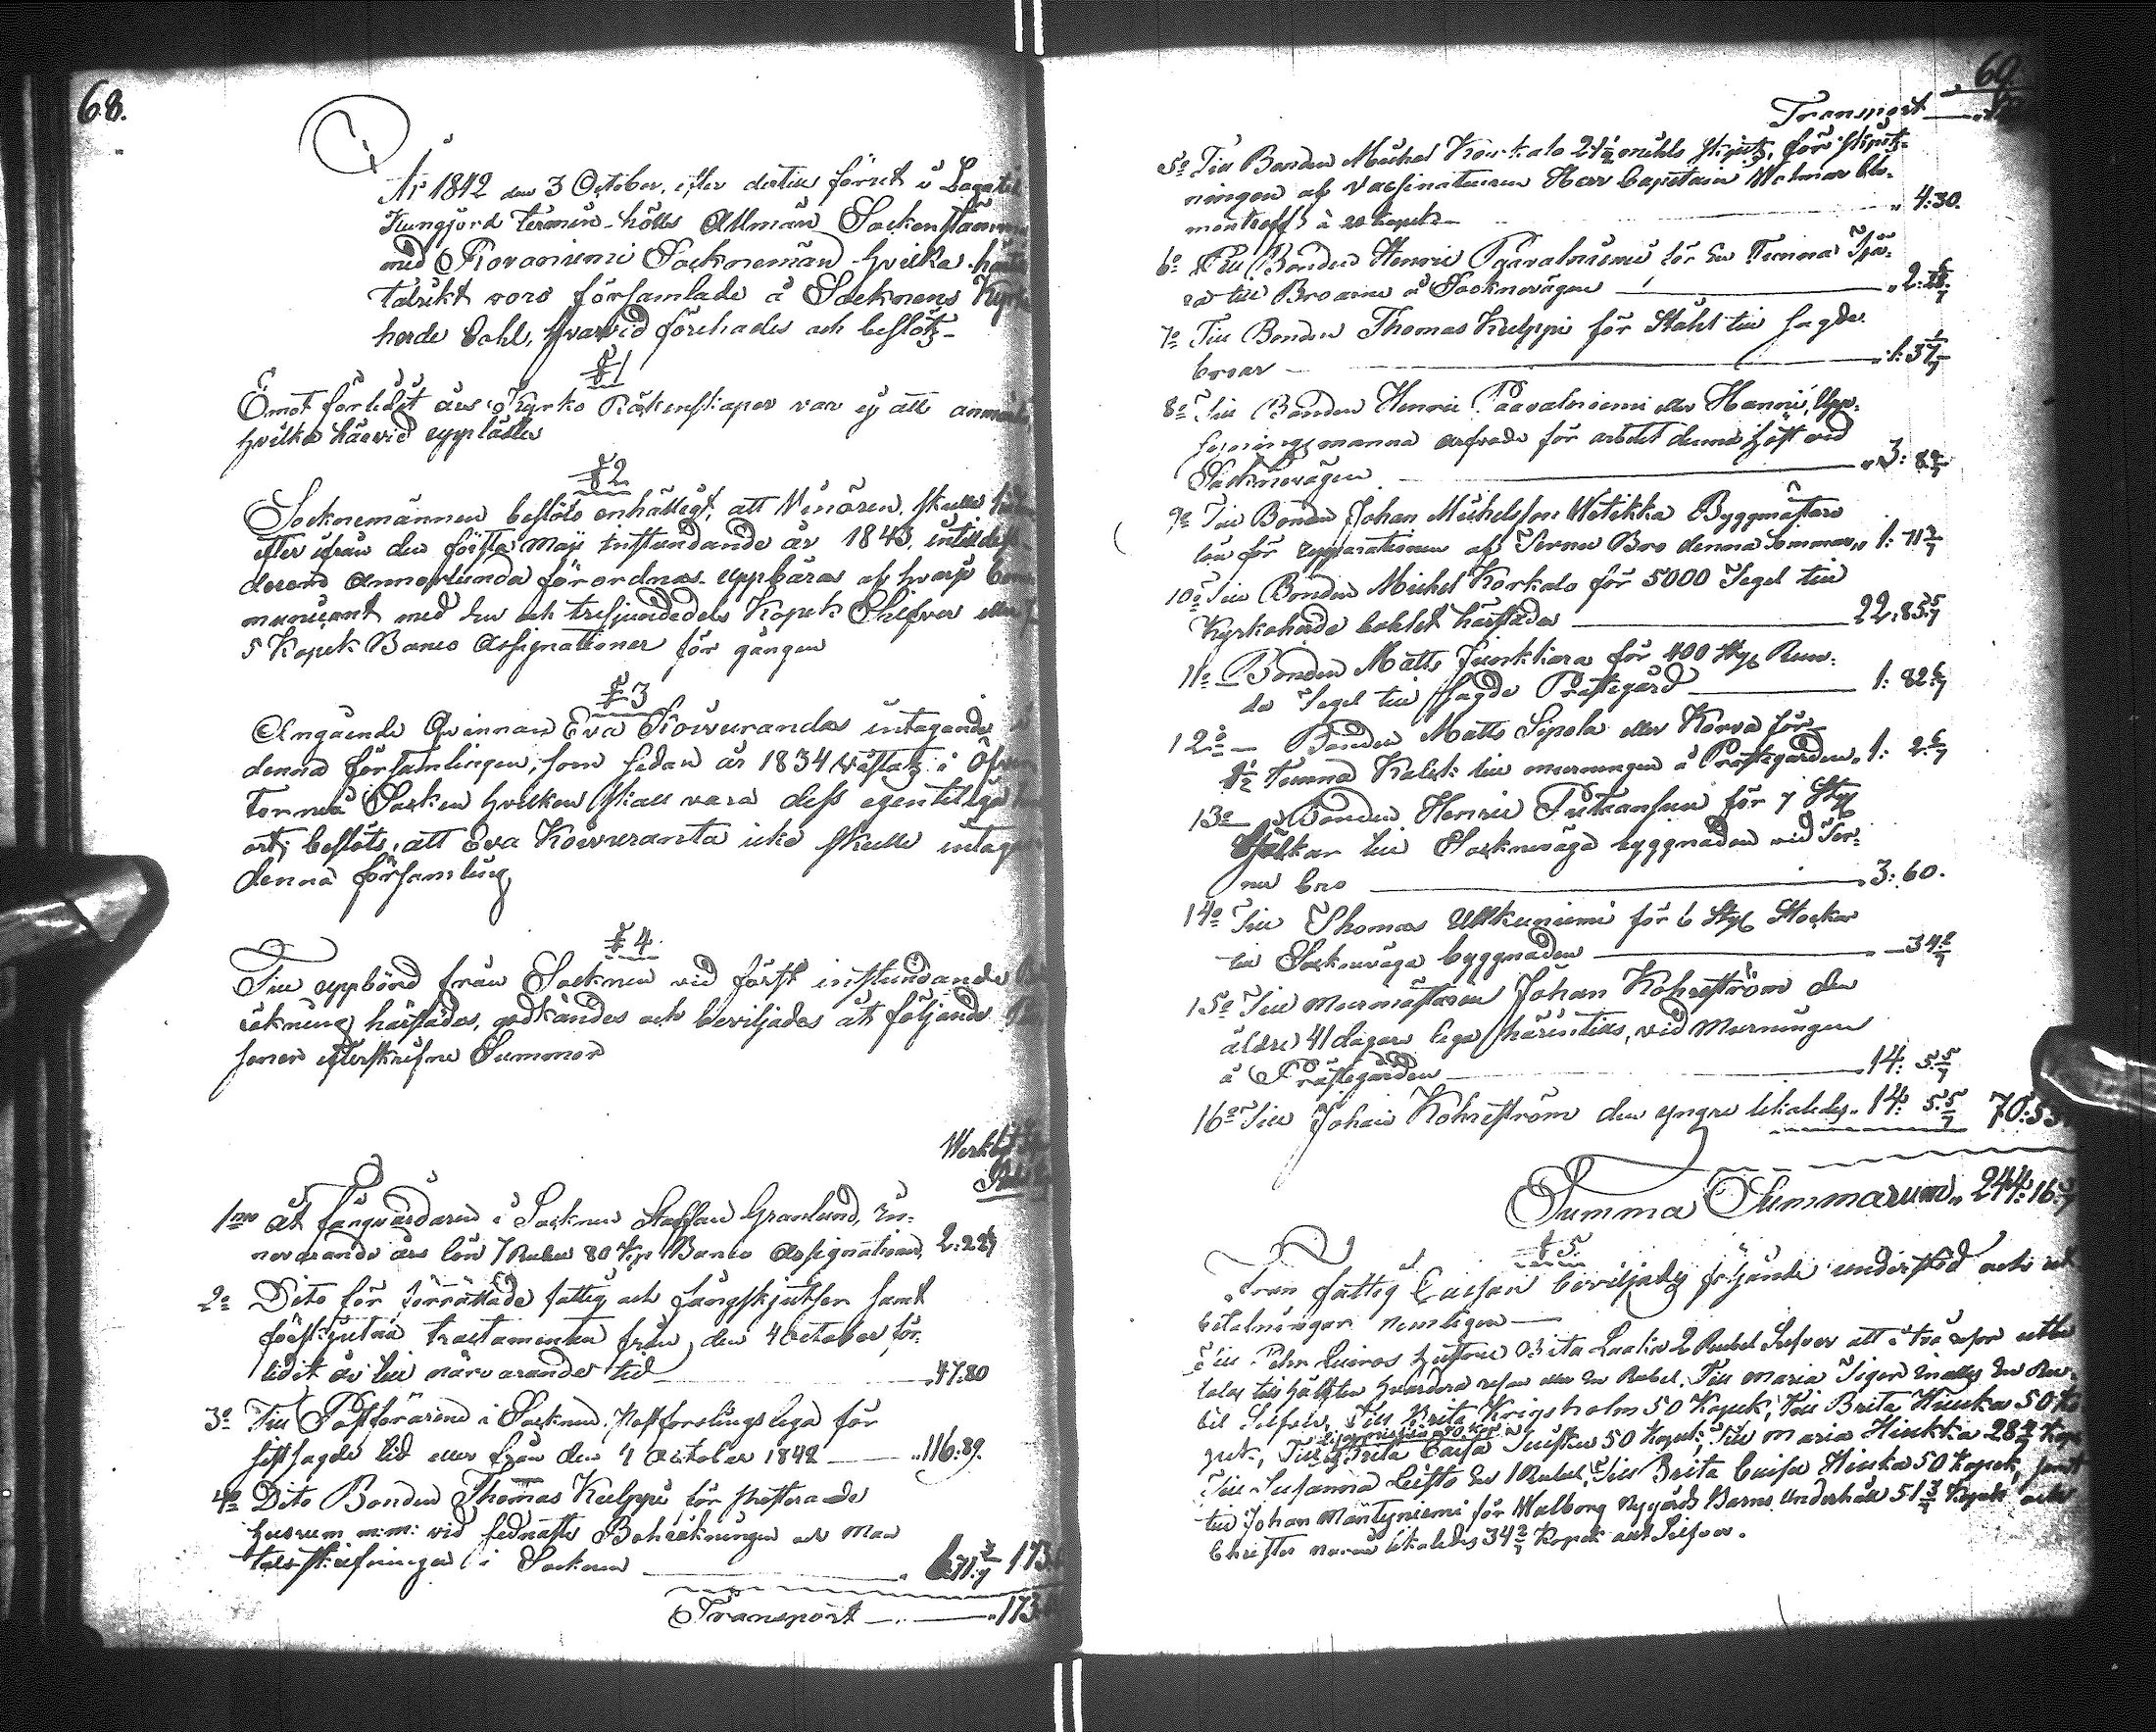 68.
År 1842 den 3 October, efter dertill förut i Laga tid
Kungjord termin hölls Allmän Sockenstämma
med Rovaniemi Socknemän hvilka
talrikt voro församlade å Socknens Kyrko
herde bohl, hvarvid förehades och beslöts
§ 1
Emot förledit års Kyrko Räkenskaper var ej att anmärka
hvilka härvid upplästes
§ 2
Socknemännen beslöto enhälligt, att Vinören skulle
efter ifrån den första Maji instundande år 1843, intill dess
derom annorlunda förordnas uppbäras af hvarje Com-
municant med en och tresjundedels Kopek Silfver eller
5 Kopek Banco Assignationer för gången
§ 3
Angående Qvinnan Eva Koivurandas intagande i
denna församlingen, som sedan år 1834 vistats i Öfver
Torneå Socken hvilken skall vara dess egentliga
ort; beslöts, att Eva Koivuranta icke skulle intagas
denna församling
§ 4
Till uppbörd från Socknen vid först instundande
räkning härstädes, godkändes och beviljades åt följande
soner efterskrifne Summor
1mo åt fångvårdaren i Socknen Staffan Granlund, in-
nevarande års lön 7 Rubel 80 Kop Banco Assignationer, 2:22 6/7
2o Dito för förrättade fattig och fångskjutsen samt
förskjutna tractamenten från den 4 October för-
lidit år till närvarande tid 47.80
3o Till Postförarene i Socknen Postforslings lega för
sistsagde tid eller från den 4 October 1842 116.89.
4o Dito Bonden Thomas Kulppi för presterade
husrum m:m: vid sednaste Bohräkningen och Man
talsskrifningen i Socknen 6:71 3/7 173
Transport 173
69
Transport
5o Till Bonden Michel Korkalo 21 1/2 mihls skjuts, för skjuts-
ningen af Vaccinateuren Herr Capitain Walmar Cle-
montreff à 20 kopek 4:30.
6o Till Bonden Henric Paavalniemi för En Tunna Tjä-
ra till Broarne å Socknevägen 2:28 6/7
7o Till Bonden Thomas Kulppi för Stohl till sagde
broar 1:37 1/7
8o Till Bonden Henric Paavalniemi eller Hannu, Upp-
syningsmanna arfvode för arbetet denna höst vid
Socknevägen 3: 8 4/7
9o Till Bonden Johan Michelsson Wetikka Byggmästare
lön för reparationen af Vernu Bro denna sommar 1: 71 3/7
10o Till Bonden Michel Korkalo för 5000 Tegel till
Kyrkoherde bohlet härstädes 22:85 5/7
11o Bonden Matts Junkkara för 400 Styc Run-
da Tegel till sagde Prästegård 1: 82 6/7
12o Bonden Matts Sipola eller Korva för
1 1/2 Tunna Kalck till murningen å Prästegården 1: 2 6/7
13o Bonden Henric Putaansuu för 7 Styc
Bjelkar till Socknevägs byggnaden vid Ver-
nu bro 3:60.
14o Till Thomas Ullkuniemi för 6 Styc Stockar
till Socknevägs byggnaden 34 2/7
15o Till murmästaren Johan Kohrström den
äldre 41 dagars lega härintills, vid Murningen
å Prästegården 14: 5 5/7
16o Till Johan Kohrström den yngre likaledes 14: 5 5/7 70:55
Summa Summarum 244:16
§ 5.
Från fattig Cassan beviljades följande understöd och ut
betalningar nemligen
Till Pehr Luiros hustru Brita Laaka 2 Rubel Silfver att i två resor utbe
talas till hälften hvardera resan eller en Rubel, Till Maria Tiger en Ru-
bel Silfver, Till Brita Krigsholm 50 Kopek, Till Brita Hiukka 50 Ko
pek, Till Brita Caisa 50 Kopek, Till Maria Hiukka 28 4/7 Kop
Till Susanna Luisto En 1 Rubel, Till Brita Caisa Hiuka 50 Kopek, samt
till Johan Mäntyniemi för Walborg Nygårds Barns Underhåll 51 3/7 Kopek och
Christer likaledes 34 2/7 Kopek allt Silfver.